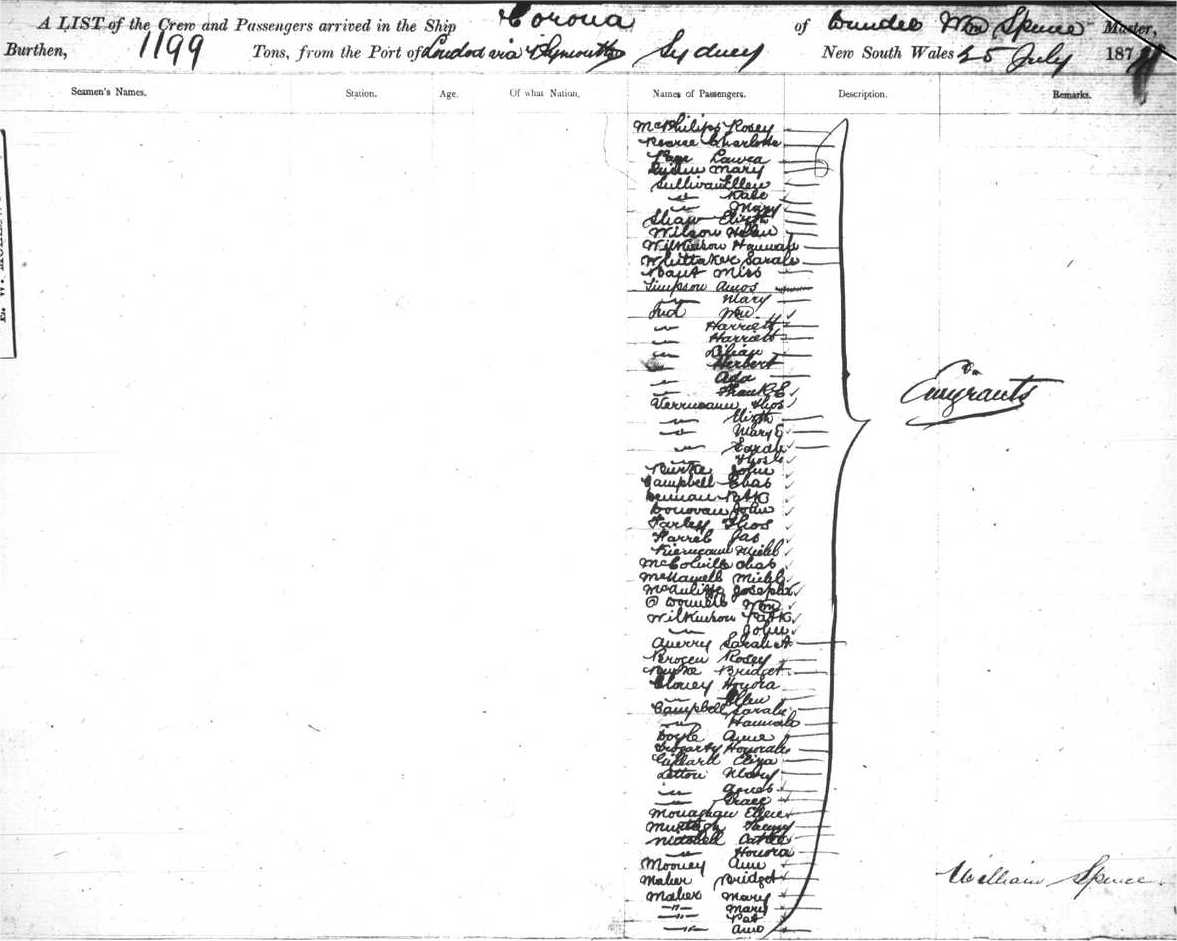 A LIST of the Crew and Passengers arrived in the Ship Corona of Dundee Wm Spence Master,
Burthen, 1199 Tons, from the Port of London via Plymouth Sydney New South Wales 25 July 187
Seamen's Names. Station. Age. Of what Nation. Names of Passengers. Description. Remarks.
McPhilips Rosey
Pearce Charlotte
Page Laura
Mary
Sullivan Ellen
" Kate
" Mary
Shaw Elizth
Wilson Helen
Wilkinson Hannah
Whittaker Sarah
Miss
Simpson Amos
" Mary
Wm
" Harriett
" Harriett
" Lilian
" Herbert
" Ada
" Frank E
Thos
" Elizth
" Mary E
" Sarah
" Thos
Burke John
Campbell Chas
Patk
Donovan John
Farley Thos
Farrell Jas
Kiernan Michl
McColville Chas
Michl
McAuliffe Joseph
O'Donnell Wm
Wilkinson Patk
" John
Querry Sarah A
Brogen Rosey
Burke Bridget
Clovey Honora
" Ellen
Campbell Sarah
" Hannah
Doyle Anne
Fogarty Honorah
Gillard Eliza
Letton Mary
" Agnes
" Grace
Monaghan Ellen
Murtagh Fanny
Mitchell Cathe
" Honora
Mooney Anne
Maher Bridget
Maher Mary
" Mary
" Pat
" Ann
Do
Emigrants
William Spence